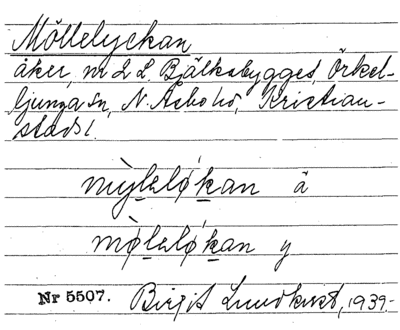 Möllelyckan
åker, nr 2 L. Bjälkabygget, Örkel-
ljunga sn, N. Åsbo hd, Kristian-
stads l.
mỳleløkan ä
mø̀leløkan y
Nr 5507. Birgit Lundkvist, 1939.